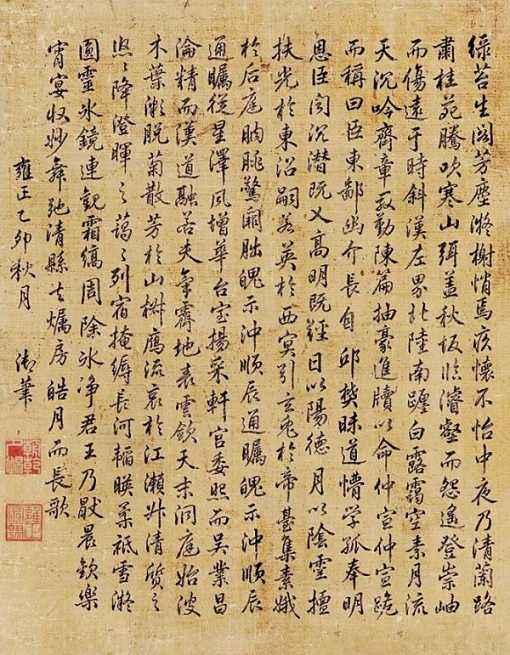 綠苔生閣芳塵凝榭悄焉疚懷不怡中夜乃清蘭路
肅桂苑騰吹寒山弭蓋秋坂臨濬壑而怨遙登崇岫
而傷遠于時斜漢左界北陸南躔白露靄空素月流
天沉吟齊章殷勤陳篇抽毫進牘以命仲宣仲宣跪
而稱曰臣東鄙幽介長自邱樊昧道懵學孤奉明
恩臣聞沉潛既义高明既經日以陽德月以陰靈擅
扶光於東沼嗣若英於西冥引玄兔於帝臺集素娥
於后庭朒朓警闕朏魄示沖順辰通矚魄示沖順辰
通矚從星澤風增華台室揚采軒宮委照而吳業昌
淪精而漢道融若夫氣霽地表雲斂天末洞庭始波
木葉漸脫菊散芳於山椒雁流哀於江瀨升清質之
悠悠降澄暉之藹藹列宿掩縟長河韜暎柔祇雪凝
圓靈水鏡連觀霜縞周除冰淨君王乃厭晨歡樂
宵宴收妙舞弛清縣去燭房皓月而長歌
雍正乙卯秋月 御筆